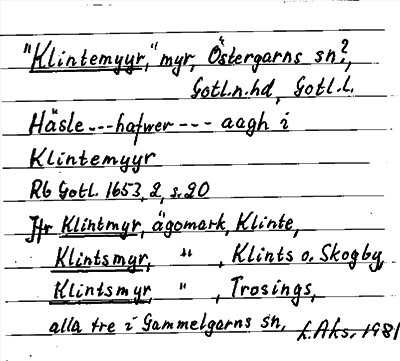 "Klintemyyr," myr, Östergarns sn?,
Gotl.n.hd, Gotl.l.
Häsle---hafwer --- aagh i
Klintemyyr
Rb Gotl. 1653, 2, s. 20
Jfr Klintmyr, ägomark, Klinte,
Klintsmyr, " , Klints o. Skogby,
Klintsmyr " , Trosings,
alla tre i Gammelgarns sn,
L.Aks. 1981